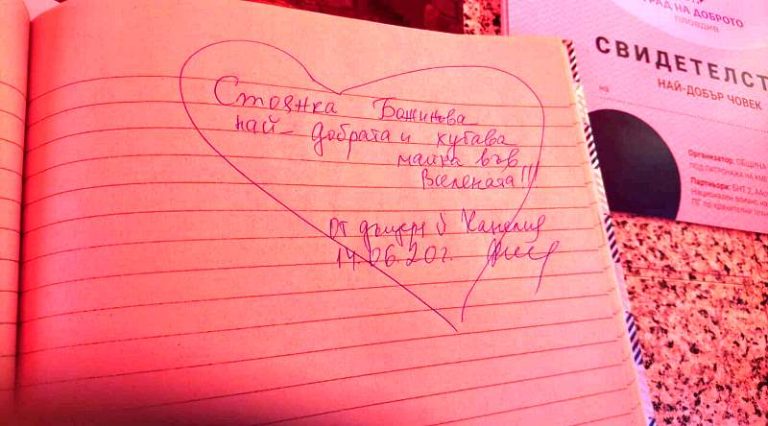 Стоянка Божинова
най-добрата и хубава
майка във
Вселената!!!
от дъщеря ѝ Камелия
14.06.20г.
ГРАД НА ДОБРОТО
ПЛОВДИВ
СВИДЕТЕЛСТ
НАЙ-ДОБЪР ЧОВЕК
на
Организатор: ОБЩИНА
ПОД ПАТРОНАЖА НА КМЕ
Партньори: БНТ 2,
Национален
ПГ по хранителни